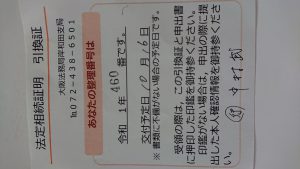 法定相続証明 引換証
大阪法務局岸和田支局
℡072-438-6501
あなたの整理番号は
令和 1年 460 番です。
交付予定日 10月16日
※ 書類に不備がない場合の予定日です。
受領の際は、この引換証と申出書
に押印した印鑑を御持参ください。
印鑑がない場合は、申出の際に提
出した本人確認情報を御持参くださ
い。